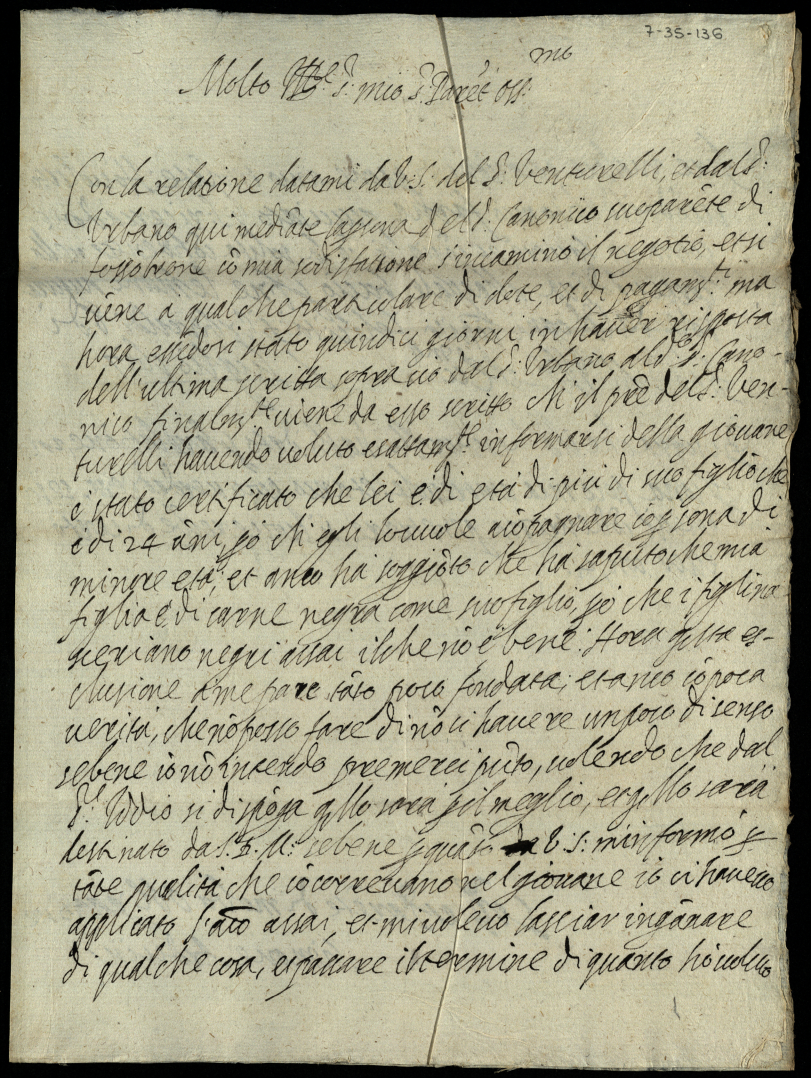 7-35-136
Molto Ill.re S.r mio S.r Parēt oss.mo
Con la relatione datami da V.S. del S.r Venturelli, et dal S.r
Urbano qui mediāte la ꝑsona del S.r Canonico suo parēte di
fossōbrone cō mia sodisfatione s'incaminò il negotio, et si
viene à qualche particulare di dote, et di pagam.ti ma
hora essēdosi stato quindici giorni in haver risposta
dell'ultima scritta sopra ciò dal S.r Urbano al d.o S.r Cano-
nico finalm.te viene da esso scritto ch' il prē del S.r Ven-
turelli havendo voluto esattam.te informarsi della giovane
è stato certificato che lei è di età di più di suo figlio che
è di 24 āni, ꝑò ch' egli lo vuole acōpagnare cō ꝑsona di
minore età, et anco ha soggiōto che ha saputo che mia
figlia è di carne negra come suo figlio, ꝑò che i figli na-
sceriano negri assai il che nō è bene. Hora q̄sta es-
clusione à me pare tāto poco fondata, et anco cō poca
verità, che nō posso fare di nō ci havere un poco di senso
sebene io nō intendo premerci pūto, volendo che dal
S.r Iddio si dispōga q̄llo sarà ꝑ il meglio, et q̄llo sarà
destinato da S.D.M. sebene ꝑ quāto V.S. m'informò ꝑ
tāte qualità che cōcorrevano nel giovane io ci havevo
applicato l'aīo assai, et mi volevo lasciar ingānare
di qualche cosa, et passare il termine di quanto hò voluto